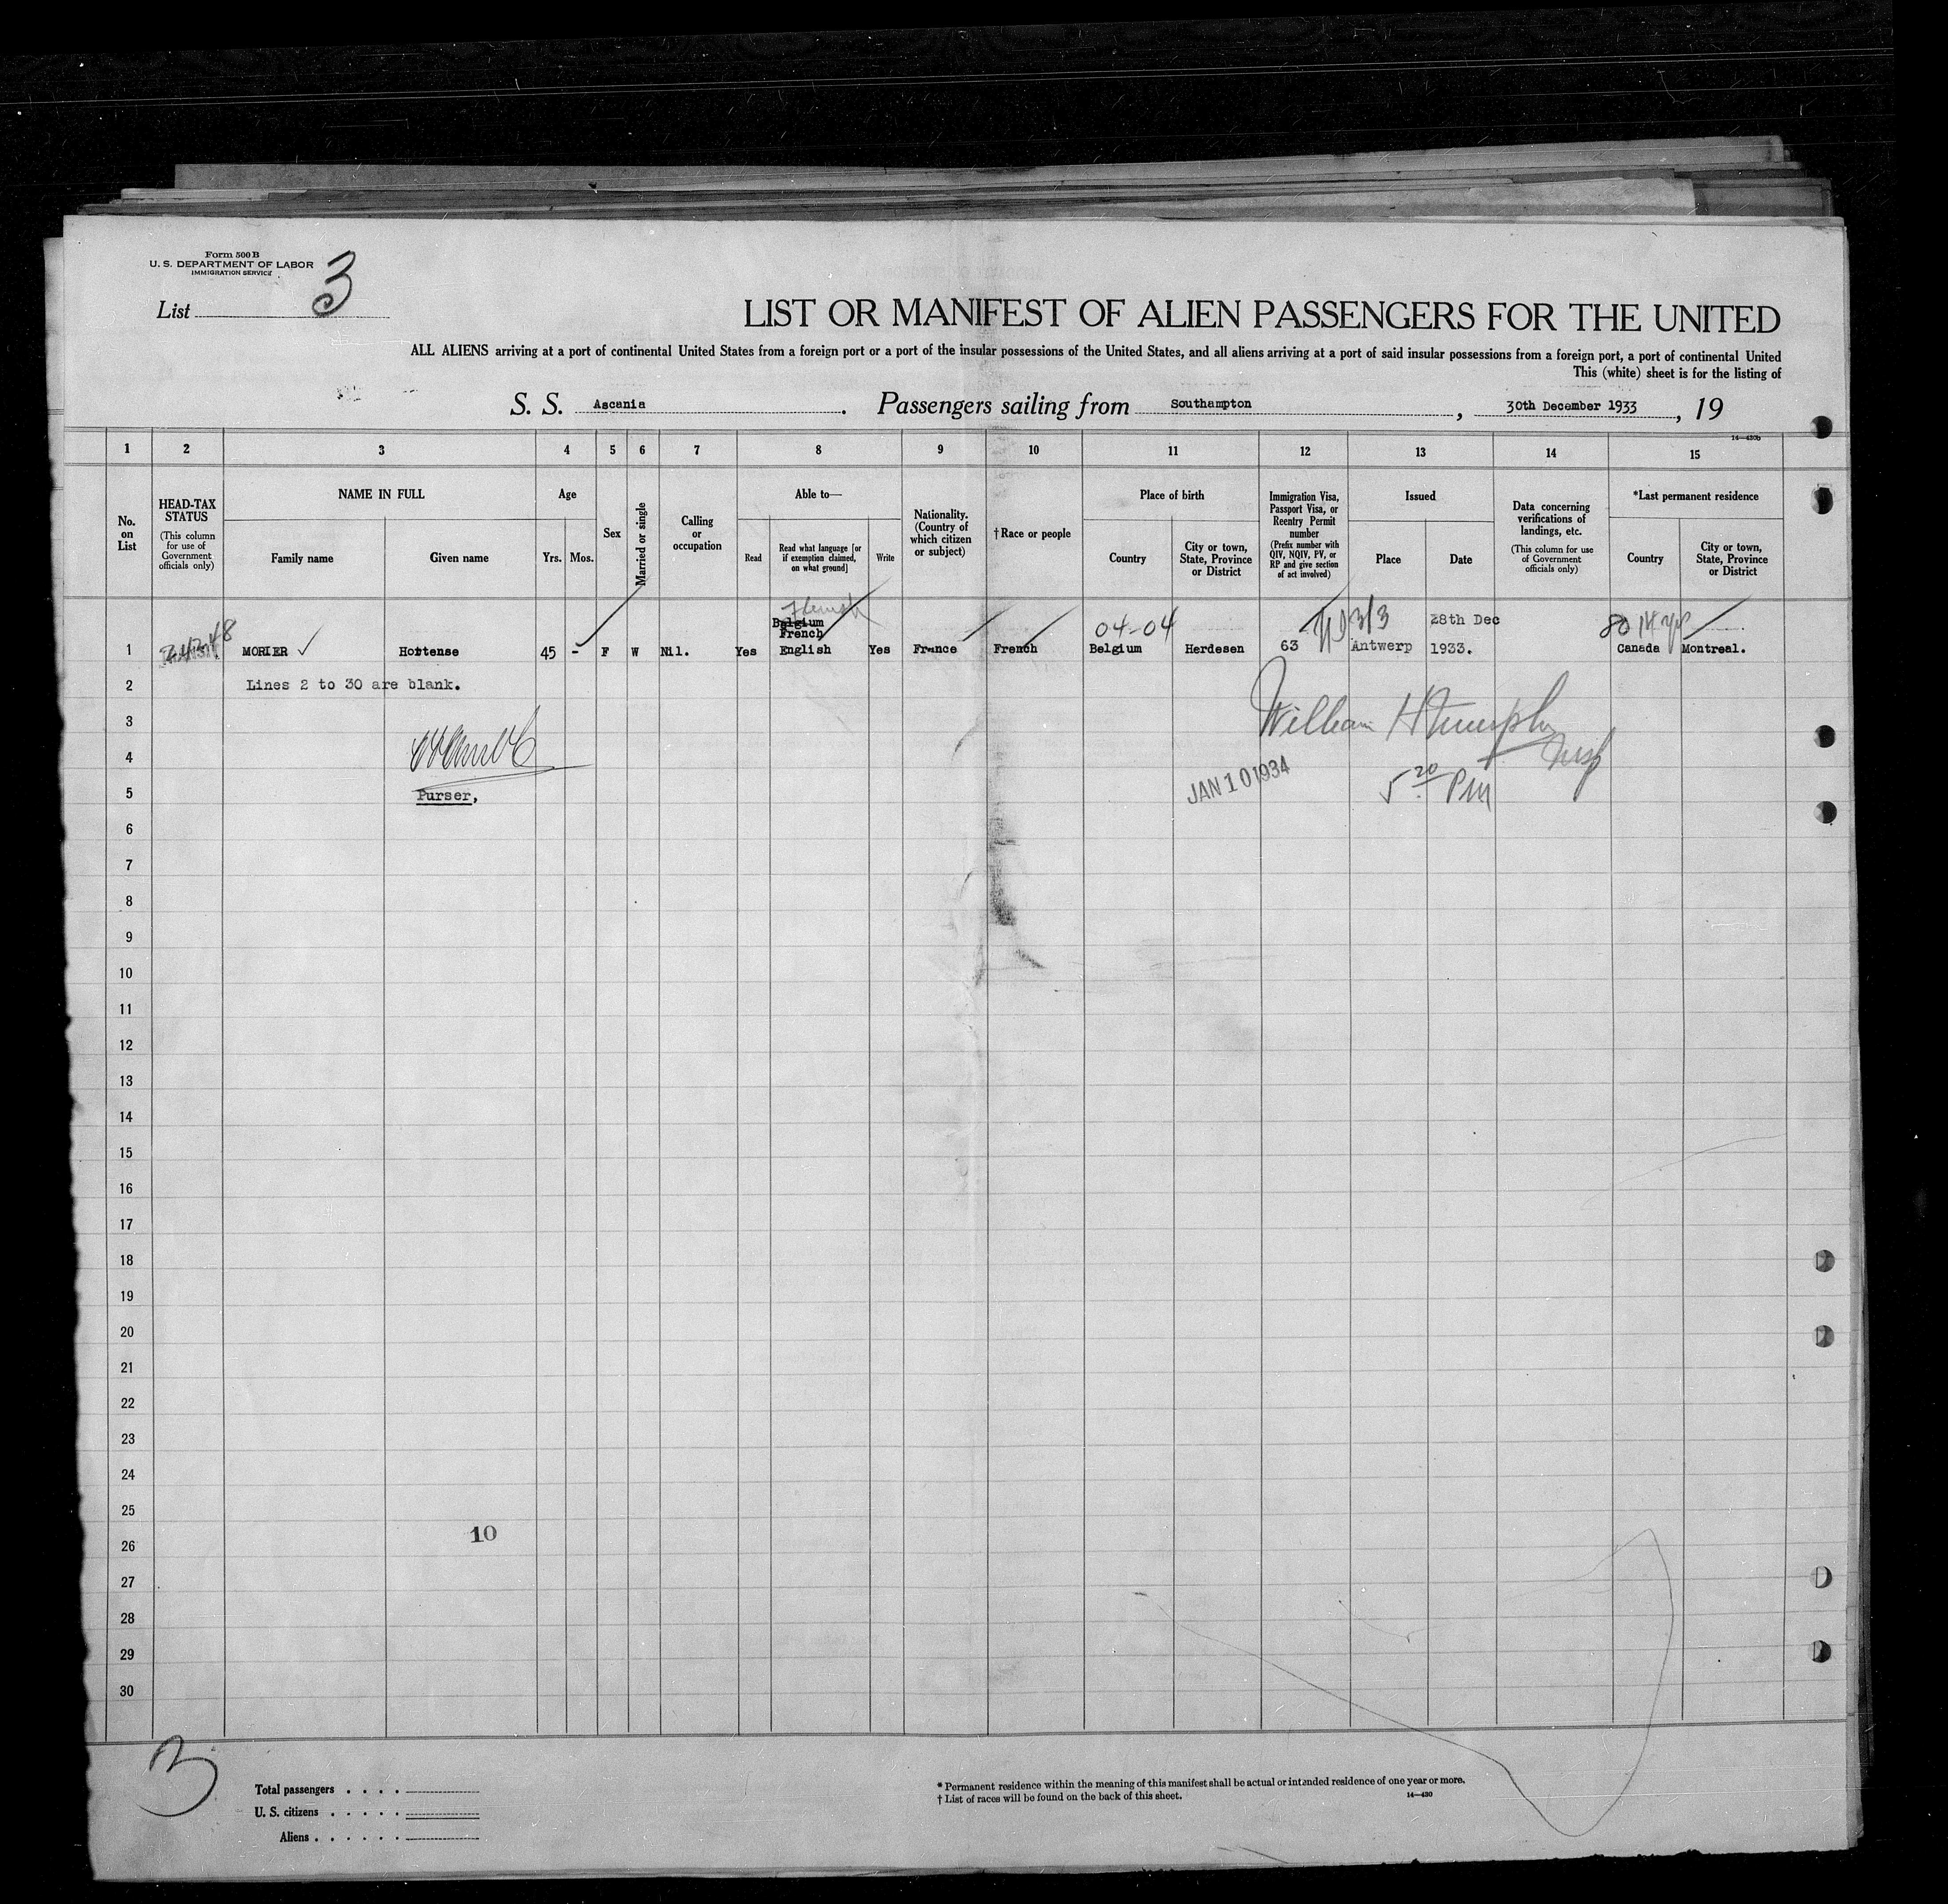 Form 500 B
U. S. DEPARTMENT OF LABOR
IMMIGRATION SERVICE
List 3
LIST OR MANIFEST OF ALIEN PASSENGERS FOR THE UNITED
ALL ALIENS arriving at a port of continental United States from a foreign port or a port of the insular possessions of the United States, and all aliens arriving at a port of said insular possessions from a foreign port, a port of continental United
This (white) sheet is for the listing of
S. S. Ascania. Passengers sailing from Southampton, 30th December 1933, 19
14—430b
1 2 3 4 5 6 7 8 9 10 11 12 13 14 15
No. on List
HEAD-TAX STATUS
(This column for use of Government officials only)
NAME IN FULL
Family name
Given name
Age
Yrs. Mos.
Sex
Married or single
Calling or occupation
Able to—
Read
Read what language [or if exemption claimed, on what ground]
Write
Nationality. (Country of which citizen or subject)
†Race or people
Place of birth
Country
City or town, State, Province or District
Immigration Visa, Passport Visa, or Reentry Permit number
(Prefix number with QIV, NQIV, PV, or RP and give section of act involved)
Issued
Place
Date
Data concerning verifications of landings, etc.
(This column for use of Government officials only)
*Last permanent residence
Country
City or town, State, Province or District
Flemish
Belgium
French
04-04
3/3
28th Dec
1 MORIER ✓ Hortense 45 - F W Nil. Yes English Yes France French Belgium Herdesen 63 Antwerp 1933. Canada Montreal.
2 Lines 2 to 30 are blank.
3 William H Murphy
4 Insp
5 Purser, JAN 10 1934 5 20 PM
6
7
8
9
10
11
12
13
14
15
16
17
18
19
20
21
22
23
24
25
10
26
27
28
29
30
3
Total passengers . . . .
U. S. citizens . . . . .
Aliens . . . . . .
* Permanent residence within the meaning of this manifest shall be actual or intended residence of one year or more.
† List of races will be found on the back of this sheet.
14—430